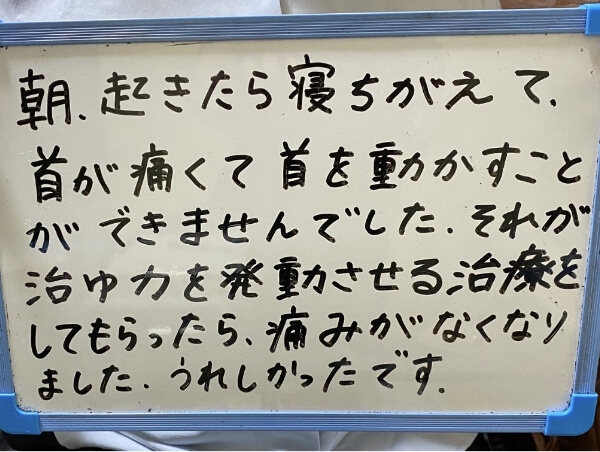 朝、起きたら寝ちがえて、
首が痛くて首を動かすこと
ができませんでした。それが
治ゆ力を発動させる治療を
してもらったら、痛みがなくなり
ました。うれしかったです。